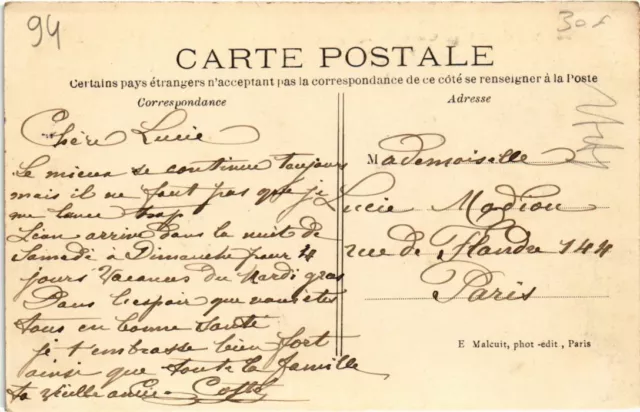 94
30f
CARTE POSTALE
Certains pays étrangers n'acceptant pas la correspondance de ce côté se renseigner à la Poste
Correspondance
Adresse
Chère Lucie
le mieux se continue toujours
mais il ne faut pas que je
me lance trop
Léon arrive dans la nuit de
Samedi à Dimanche pour 4
jours Vacances du Mardi gras
Dans l'espoir que vous êtes
tous en bonne santé
je t'embrasse bien fort
ainsi que toute la famille
ta vieille amie
Mademoiselle
Lucie Modiou
rue de Flandre 144
Paris
E Malcuit, phot-edit, Paris